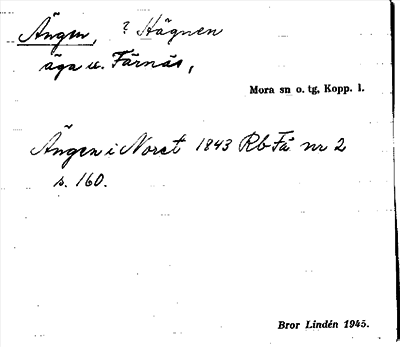 Ängen, ? Hägnen
äga u. Färnäs,
Mora sn o. tg, Kopp. l.
Ängen i Noret 1843 Rb Få nr 2
s. 160.
Bror Lindén 1945.